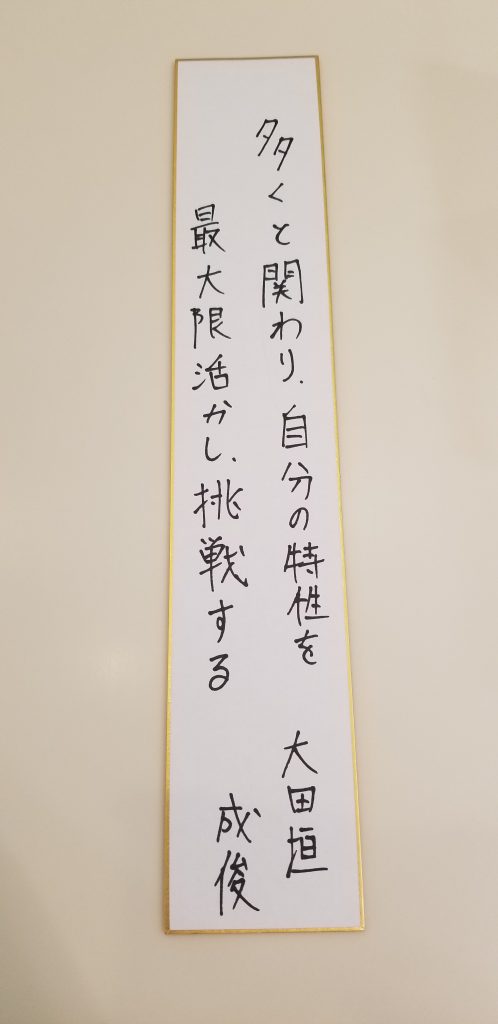 多くと関わり、自分の特性を
最大限活かし、挑戦する
大田垣
成俊